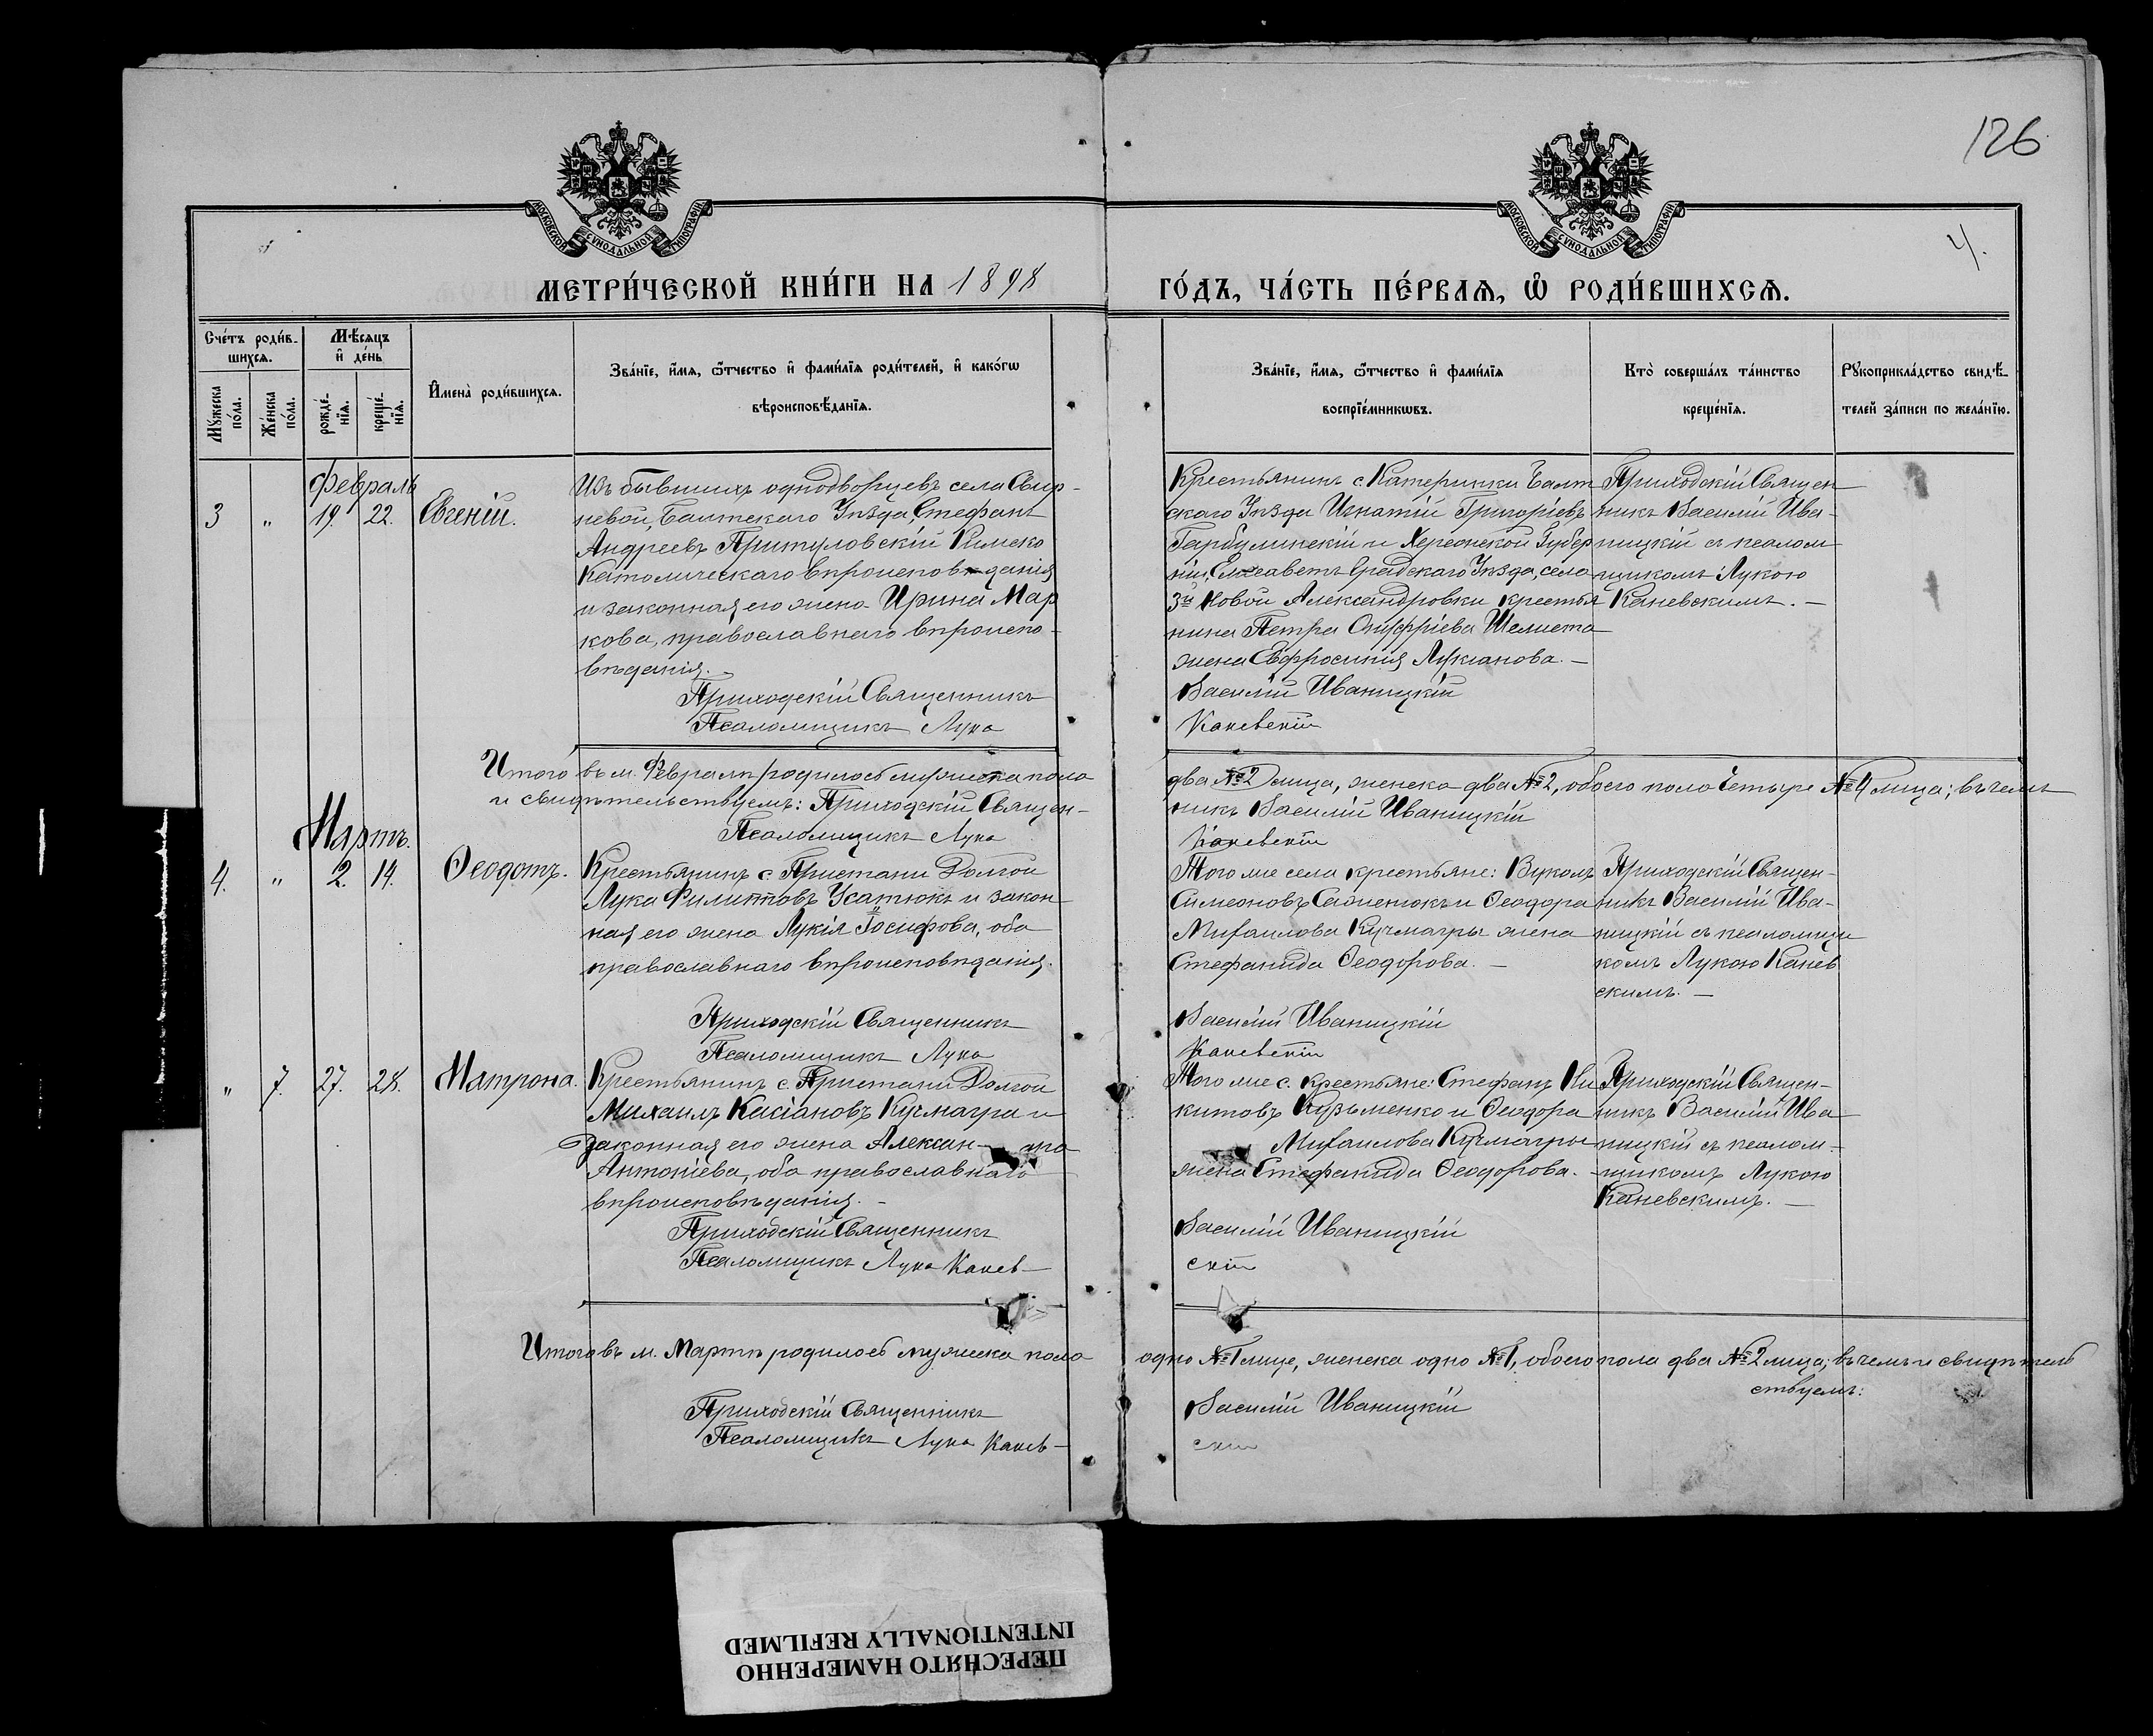 126
МОСКОВСКОЙ СУНОДАЛЬНОЙ ТИПОГРАФІИ
МОСКОВСКОЙ СУНОДАЛЬНОЙ ТИПОГРАФІИ
4.
МЕТРИ́ЧЕСКОЙ КНИ́ГИ НА 1898
ГО́ДЪ, ЧА́СТЬ ПЕ́РВАЯ, Ѡ РОДИ́ВШИХСЯ.
Сче́тъ роди́в-
шихся.
Мꙋжеска по́ла.
Же́нска по́ла.
Мѣ́сяцъ
и҆ де́нь
рожде́-нїя.
креще́-нїя.
И҆мена̀ роди́вшихся.
Зва́нїе, и҆́мя, ѻ҆́тчество и҆ фами́лїя роди́телей, и҆ како́гѡ
вѣроисповѣ́данїя.
Зва́нїе, и҆́мя, ѻ҆́тчество и҆ фами́лїя
воспрїе́мникѡвъ.
Кто̀ соверша́лъ та́инство
креще́нїя.
Рꙋкоприкла́дство свидѣ́-
телей за́писи по жела́нїю.
Февраль
3 " 19. 22. Евгеній.
Изъ бывшихъ однодворцевъ села Свир-
невой, Балтскаго Уѣзда, Стефанъ
Андреевъ Притуловскій Римско
Католическаго вѣроисповѣданія
и законная его жена Ирина Мар
кова, православнаго вѣроиспо-
вѣданія.-
Приходскій Священникъ
Псаломщикъ Лука
Крестьянинъ с. Катеринки Балт
скаго Уѣзда Игнатій Григоріевъ
Гарбулинскій и Херсонской Губер
ніи, Елисаветъ Градскаго Уѣзда, села
3й Новой Александровки крестья
нина Петра Онуфріева Шелиста
жена Евфросинія Лукіанова.-
Василій Иваницкій
Каневскій
Приходскій Священ
никъ Василій Ива-
ницкій съ псалом
щикомъ Лукою
Каневскимъ.-
Итого въ м. Февралѣ родилось мужеска пола
два №2 лица, женска два №2, обоего пола четыре №4 лица; въ чемъ
и свидѣтельствуемъ: Приходскій Священ-
никъ Василій Иваницкій
Псаломщикъ Лука
Каневскій
Мартъ.
4. " 2. 14. Ѳеодотъ.
Крестьянинъ с. Пристани Долгой
Лука Филиповъ Усатюкъ и закон-
ная его жена Лукія Іосифова, оба
православнаго вѣроисповѣданія.
Приходскій Священникъ
Псаломщикъ Лука
Того же села крестьяне: Вуколъ
Симеоновъ Саженюкъ и Ѳеодора
Михаилова Кучмагры жена
Стефанида Ѳеодорова.-
Василій Иваницкій
Каневскій
Приходскій Священ-
никъ Василій Ива-
ницкій съ псаломщи
комъ Лукою Канев
скимъ.-
" 7. 27. 28. Матрона.
Крестьянинъ с. Пристани Долгой
Михаилъ Касіановъ Кучмагра и
законная его жена Алексан-
Антоніева, оба православнаго
вѣроисповѣданія.-
Приходскій Священникъ
Псаломщикъ Лука Канев-
Того же с. крестьяне: Стефанъ Ни
китовъ Кузьменко и Ѳеодора
Михаилова Кучмагры
жена Стефанида Ѳеодорова.-
Василій Иваницкій
скій
Приходскій Священ-
никъ Василій Ива
ницкій съ псалом-
щикомъ Лукою
Каневскимъ.-
Итого въ м. Мартѣ родилось мужеска пола
одно №1 лице, женска одно №1, обоего пола два №2 лица; въ чемъ и свидѣтель
ствуемъ:
Приходскій Священникъ
Василій Иваницкій
Псаломщикъ Лука Канев-
скій
ПЕРЕСНЯТО НАМЕРЕННО
INTENTIONALLY REFILMED